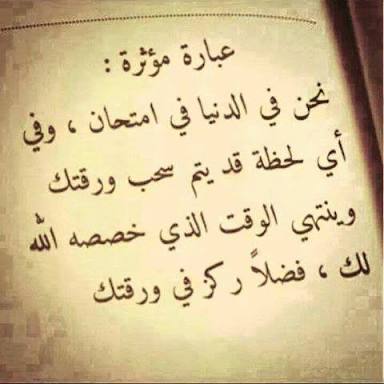 عبارة مؤثرة :
نحن في الدنيا في امتحان ، وفي
أي لحظة قد يتم سحب ورقتك
وينتهي الوقت الذي خصصه الله
لك ، فضلاً ركز في ورقتك